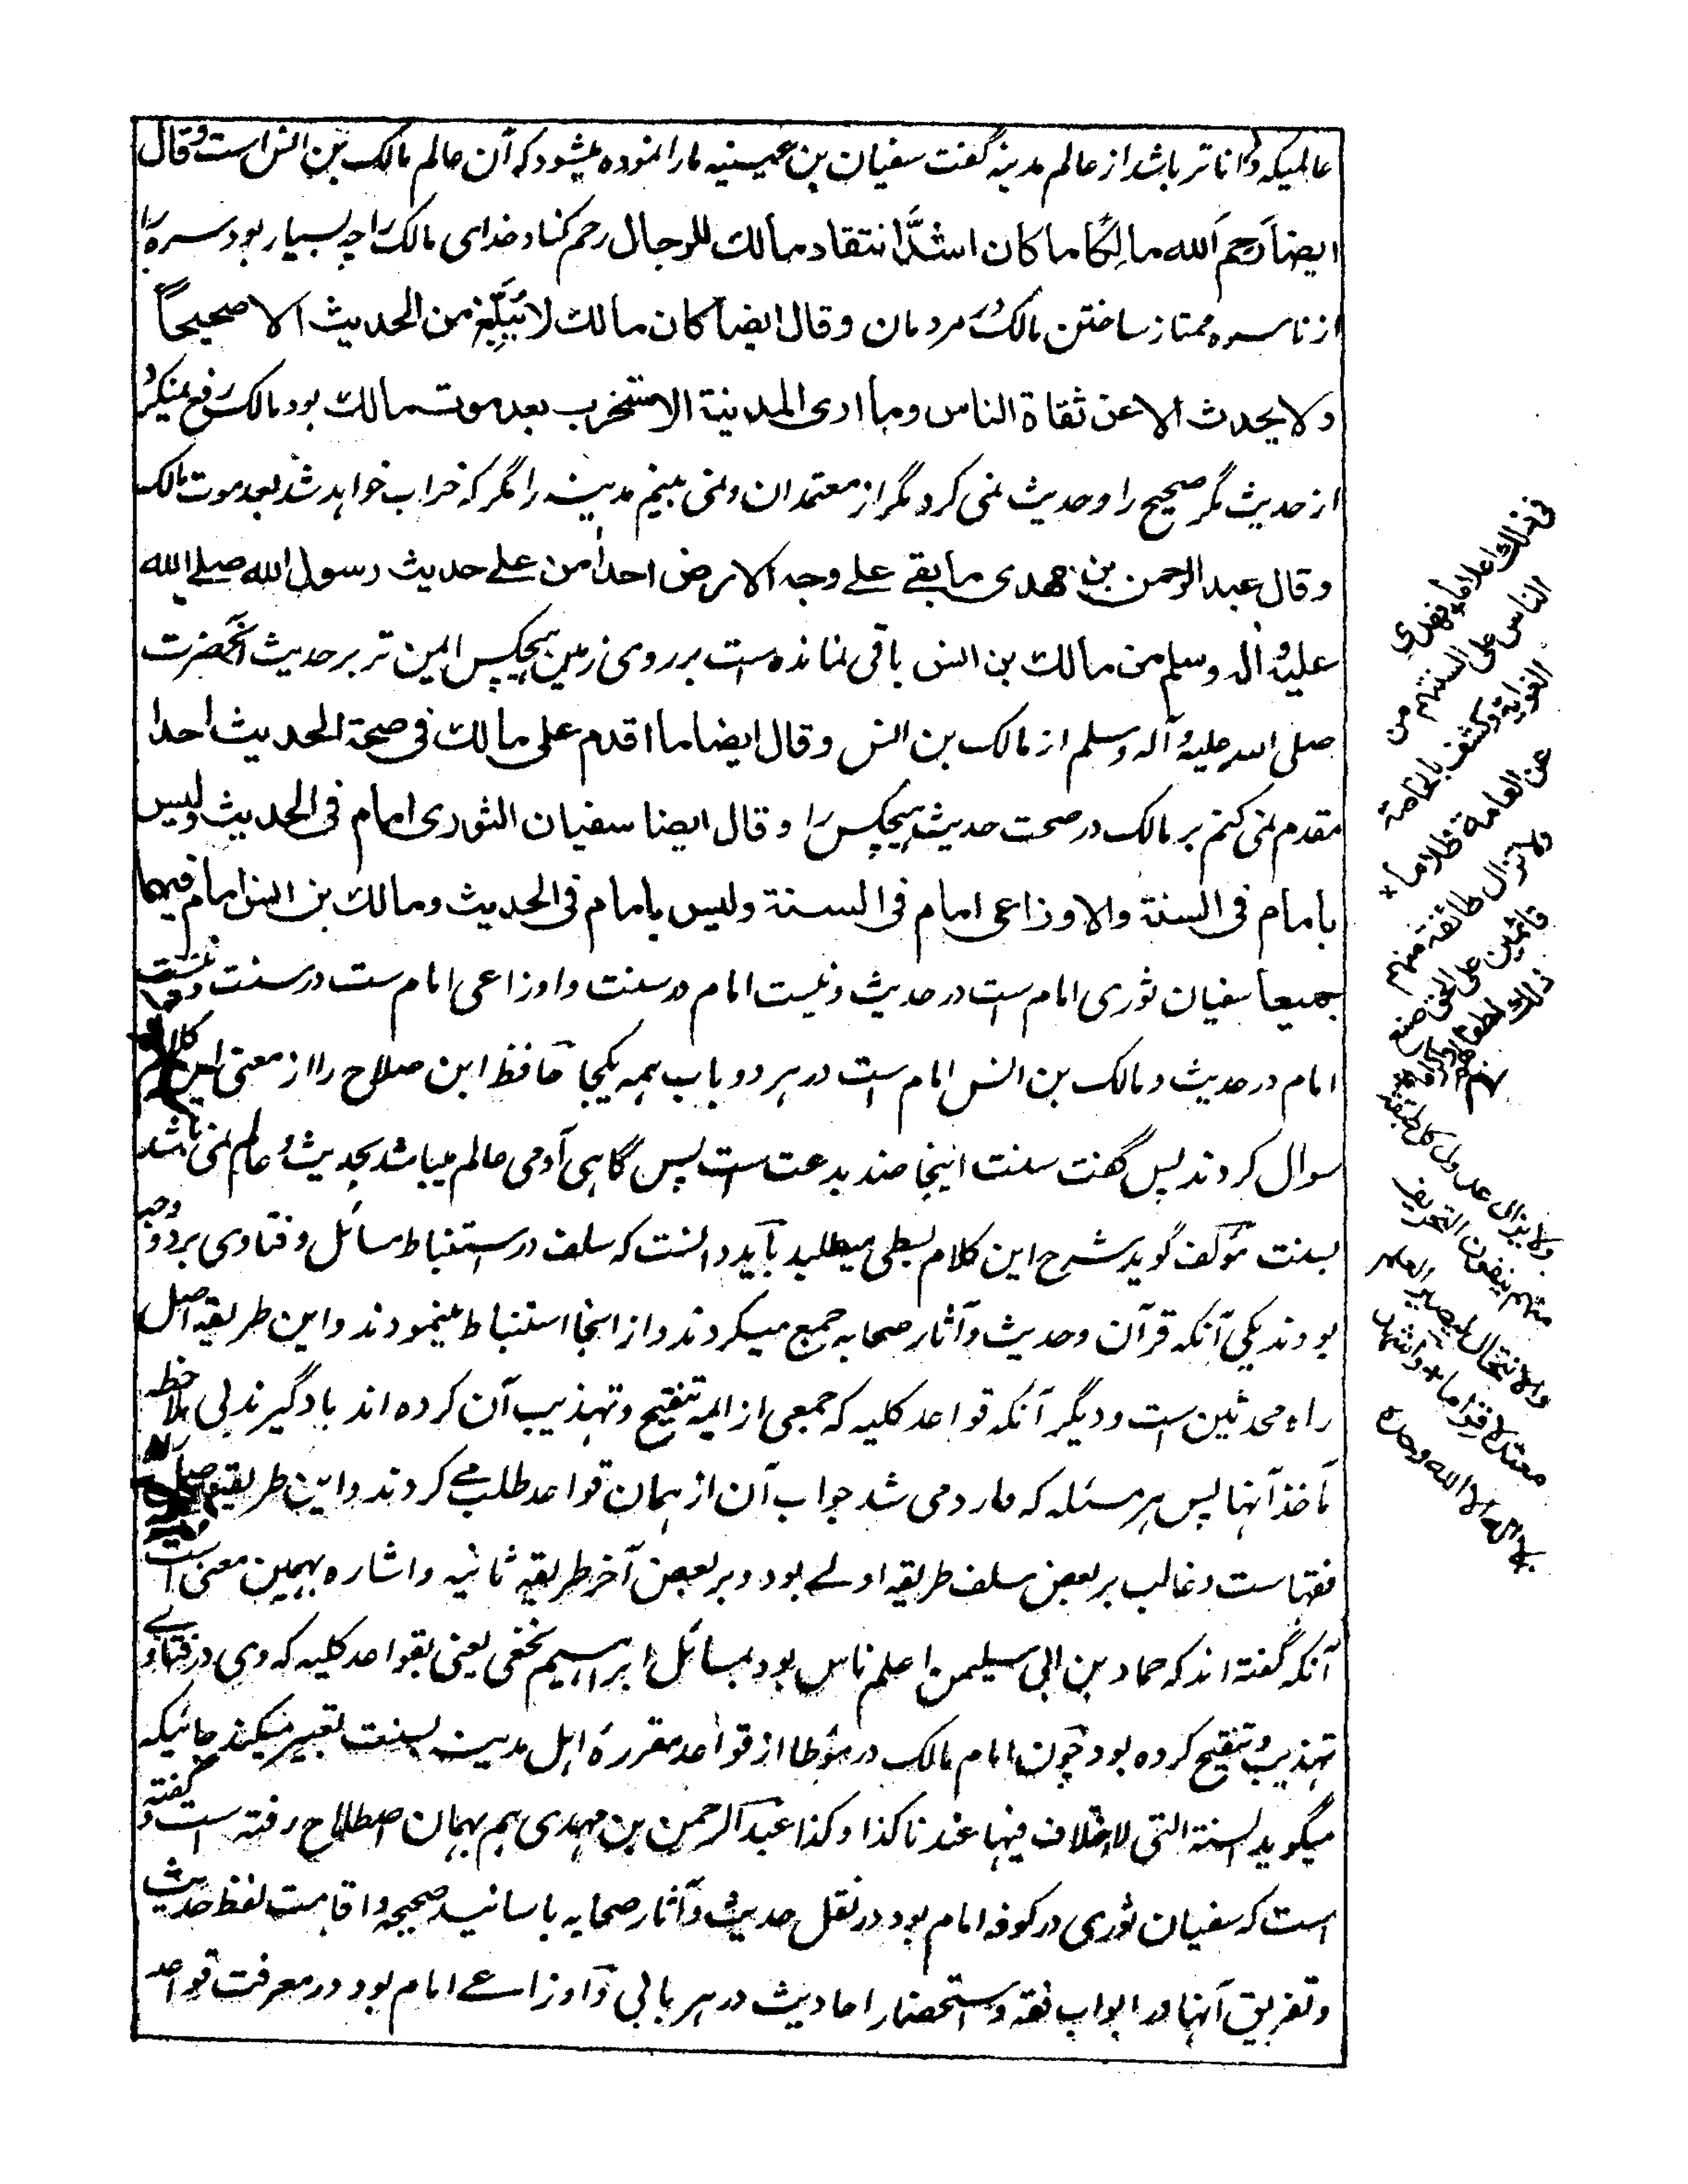 عالمیکه داناتر باشد از عالم مدینه گفت سفیان بن عیینه مارا نموده میشود که آن عالم مالک بن انس است وقال
ایضا رحم الله مالکا ما کان اشد انتقاد مالك للرجال رحم کناد خدای مالک را چه بسیار بود سره را
از ناسره ممتاز ساختن مالک مردمان وقال ایضا کان مالك لا یبلغ من الحدیث الا صحیحاً
ولا یحدث الا عن ثقاة الناس وما اری المدینة الا ستخرب بعد موت مالك بود مالک رفع نمیکرد
از حدیث مگر صحیح را وحدیث نمی کرد مگر از معتمدان ونمی بینم مدینه را مگر که خراب خواهد شد بعد موت مالک
وقال عبد الرحمن بن مهدی ما بقے علے وجه الارض احد امن علے حدیث رسول الله صلے الله
علیه و اله وسلم من مالك بن انس باقی نمانده است بر روی زمین هیچکس امین تر بر حدیث آنحضرت
صلی الله علیه و آله وسلم از مالک بن انس وقال ایضا ما اقدم علی مالك فی صحة الحدیث احدا
مقدم نمی کنم بر مالک در صحت حدیث هیچکس را وقال ایضا سفیان الثوری امام فی الحدیث ولیس
بامام فی السنة والاوزاعی امام فی السنة ولیس بامام فی الحدیث ومالك بن انس امام فیهما
جمیعا سفیان ثوری امام ست در حدیث ونیست امام در سنت واوزاعی امام ست در سنت ونیست
امام در حدیث ومالک بن انس امام ست در هر دو باب همه یکجا حافظ ابن صلاح را از معنی این کلام
سوال کردند پس گفت سنت اینجا ضد بدعت ست پس گاهی آدمی عالم میباشد بحدیث و عالم نمی باشد
بسنت مؤلف گوید شرح این کلام بسطی میطلبد باید دانست که سلف در استنباط مسائل وفتاوی بر دو وجه
بودند یکی آنکه قرآن وحدیث وآثار صحابه جمع میکردند واز انجا استنباط مینمودند واین طریقه اصل
راه محدثین ست ودیگر آنکه قواعد کلیه که جمعی از ایمه تنقیح وتهذیب آن کرده اند یاد گیرند بی ملاحظه
مآخذ آنها پس هر مسئله که وارد می شد جواب آن از همان قواعد طلب مے کردند واین طریقه اصل راه
فقهاست وغالب بر بعض سلف طریقه اولے بود وبر بعض آخر طریقه ثانیه واشاره بهمین معنی است
آنکه گفته اند که حماد بن ابی سلیمن اعلم ناس بود بمسائل ابراهیم نخعی یعنی بقواعد کلیه که وی در فتاوے
تهذیب وتنقیح کرده بود چون امام مالک در مؤطا از قواعد مقرره اهل مدینه بسنت تعبیر میکند جائیکه
میگوید السنة التی لا اختلاف فیها عندنا کذا وکذا عبد الرحمن بن مهدی هم بهمان اصطلاح رفته است و گفته
است که سفیان ثوری در کوفه امام بود در نقل حدیث وآثار صحابه باسانید صحیحه واقامت لفظ حدیث
وتفریق آنها در ابواب فقه واستحضار احادیث در هر بابی واوزاعے امام بود در معرفت قواعد
فی ذلك اعلاما فهدی
الناس علی السنتهم من
الغوایة وکشف بالخاصة
عن العامة ظلاما
ولا تزال طائفة منهم
قائمین علی الحق صنع
ذلك لطفا
بهم
ولا یزال عدول کل طبقة
منهم ینفون التحریف
والانتحال
الا الله وحده